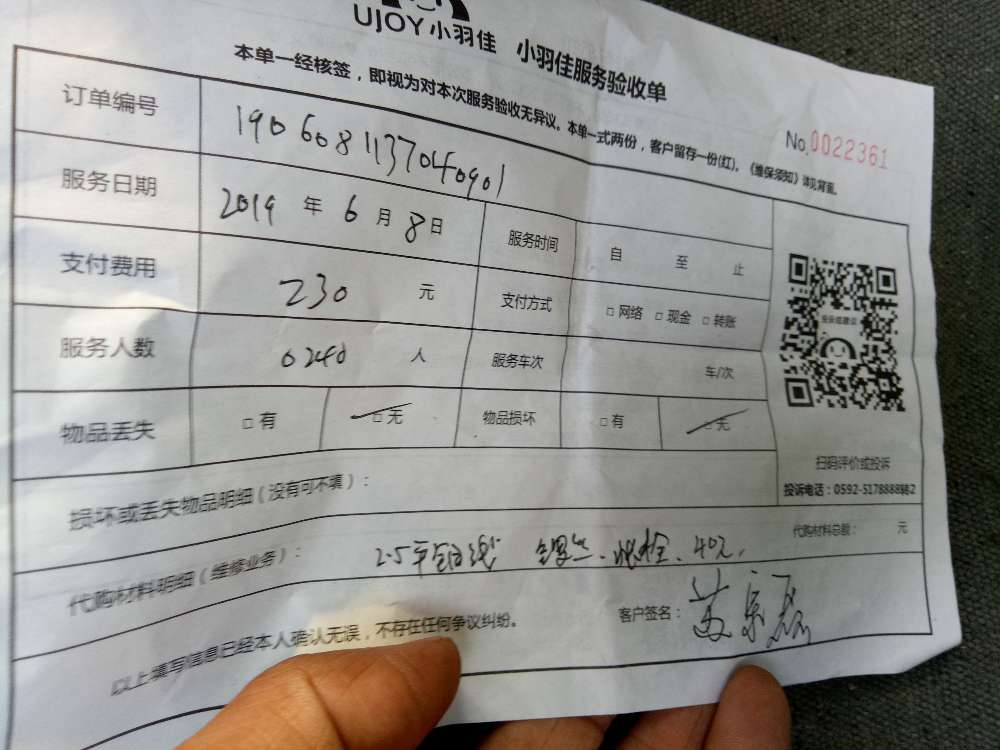 UJOY小羽佳 小羽佳服务验收单
本单一经核签，即视为对本次服务验收无异议。本单一式两份，客户留存一份(红)。《维保须知》详见背面。
No.0022361
订单编号 1906081137040901
服务日期 2019 年 6 月 8 日 服务时间 自 至 止
支付费用 230 元 支付方式 □ 网络 □ 现金 □ 转账
服务人数 0240 人 服务车次 车/次
物品丢失 □ 有 □ 无 物品损坏 □ 有 □ 无
扫码评价或投诉
投诉电话：0592-5178888转2
损坏或丢失物品明细（没有可不填）：
代购材料总额： 元
代购材料明细（维修业务）： 2.5平 线
客户签名： 苏
以上填写信息已经本人确认无误，不存在任何争议纠纷。